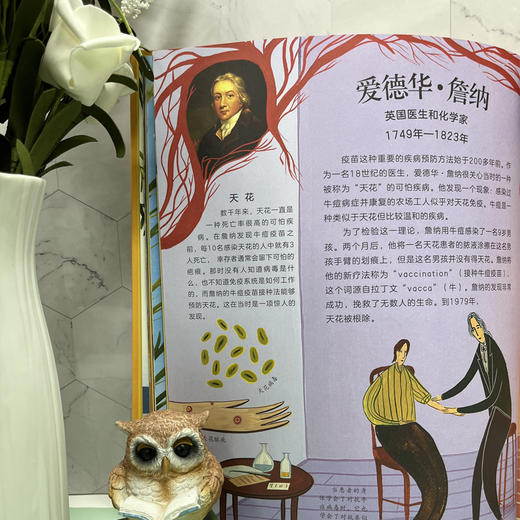 爱德华·詹纳
英国医生和化学家
1749年—1823年
疫苗这种重要的疾病预防方法始于200多年前。作
为一名18世纪的医生，爱德华·詹纳很关心当时的一种
被称为“天花”的可怕疾病。他发现一个现象：感染过
牛痘病症并康复的农场工人似乎对天花免疫。牛痘是一
种类似于天花但比较温和的疾病。
为了检验这一理论，詹纳用牛痘感染了一名9岁男
孩。两个月后，他将一名天花患者的脓液涂擦在这名男
孩手臂的划痕上，但是这名男孩并没有得天花。詹纳将
他的新疗法称为“vaccination”（接种牛痘疫苗），
这个词源自拉丁文“vacca”（牛）。詹纳的发现非常
成功，挽救了无数人的生命。到1979年，
天花被根除。
天花
数千年来，天花一直是
一种死亡率很高的可怕疾
病。在詹纳发现牛痘疫苗之
前，每10名感染天花的人中就有3
人死亡，幸存者通常会留下可怕的
疤痕。那时没有人知道病毒是什
么，也不知道免疫系统是如何工作
的，而詹纳的牛痘疫苗接种法能够
预防天花。这在当时是一项惊人的
发现。
天花病毒
当患者的身
体学会了对抗牛
痘病毒时，它也
学会了对抗天花